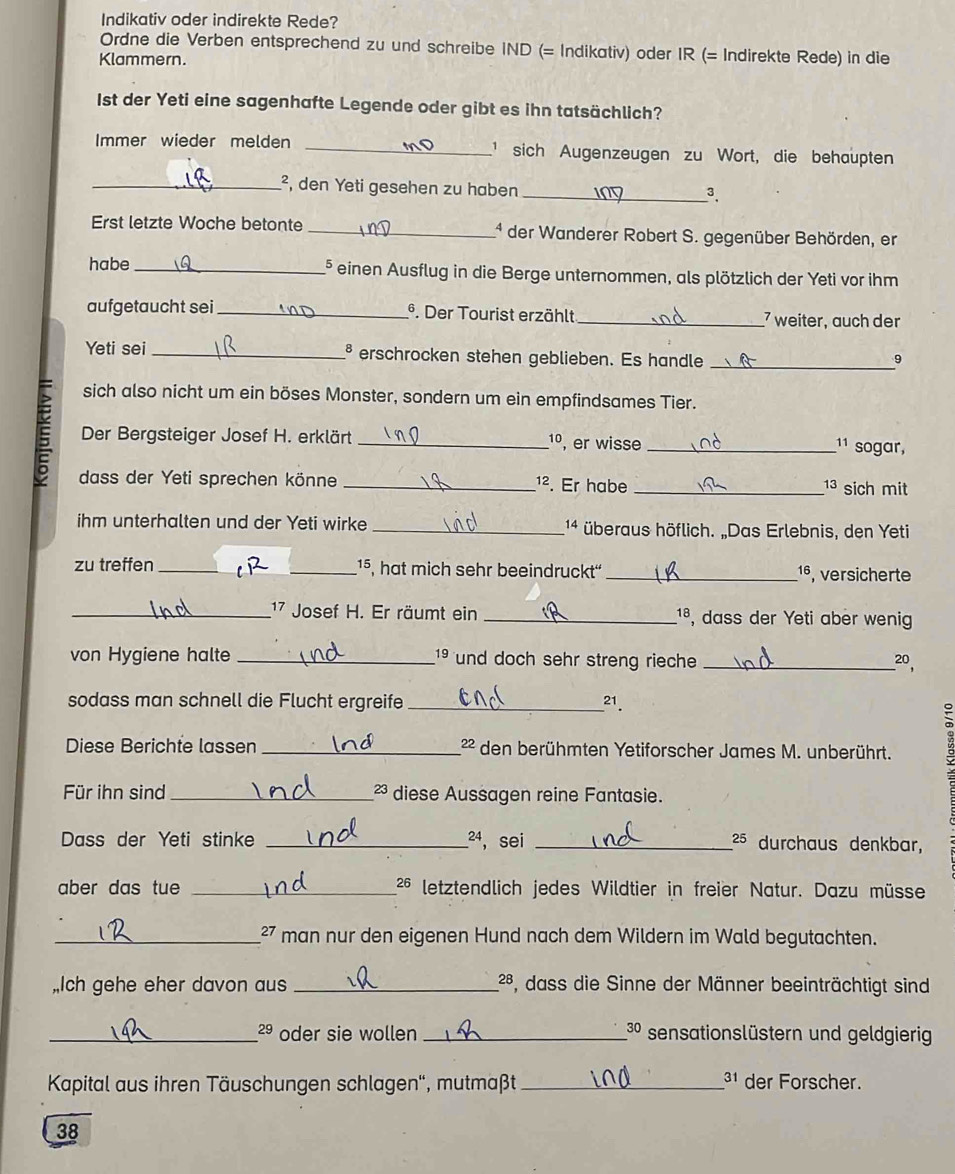 Indikativ oder indirekte Rede?
Ordne die Verben entsprechend zu und schreibe IND (= Indikativ) oder IR (= Indirekte Rede) in die
Klammern.
Ist der Yeti eine sagenhafte Legende oder gibt es ihn tatsächlich?
Immer wieder melden IND ¹ sich Augenzeugen zu Wort, die behaupten
IR ², den Yeti gesehen zu haben IND ³.
Erst letzte Woche betonte IND ⁴ der Wanderer Robert S. gegenüber Behörden, er
habe IR ⁵ einen Ausflug in die Berge unternommen, als plötzlich der Yeti vor ihm
aufgetaucht sei IND ⁶. Der Tourist erzählt Ind ⁷ weiter, auch der
Yeti sei IR ⁸ erschrocken stehen geblieben. Es handle IR ⁹
sich also nicht um ein böses Monster, sondern um ein empfindsames Tier.
Der Bergsteiger Josef H. erklärt IND ¹⁰, er wisse Ind ¹¹ sogar,
dass der Yeti sprechen könne IR ¹². Er habe IR ¹³ sich mit
ihm unterhalten und der Yeti wirke Ind ¹⁴ überaus höflich. „Das Erlebnis, den Yeti
zu treffen IR ¹⁵, hat mich sehr beeindruckt“ IR ¹⁶, versicherte
Ind ¹⁷ Josef H. Er räumt ein IR ¹⁸, dass der Yeti aber wenig
von Hygiene halte Ind ¹⁹ und doch sehr streng rieche Ind ²⁰,
sodass man schnell die Flucht ergreife Ind ²¹.
Diese Berichte lassen Ind ²² den berühmten Yetiforscher James M. unberührt.
Für ihn sind Ind ²³ diese Aussagen reine Fantasie.
Dass der Yeti stinke Ind ²⁴, sei Ind ²⁵ durchaus denkbar,
aber das tue Ind ²⁶ letztendlich jedes Wildtier in freier Natur. Dazu müsse
IR ²⁷ man nur den eigenen Hund nach dem Wildern im Wald begutachten.
„Ich gehe eher davon aus IR ²⁸, dass die Sinne der Männer beeinträchtigt sind
IR ²⁹ oder sie wollen IR ³⁰ sensationslüstern und geldgierig
Kapital aus ihren Täuschungen schlagen“, mutmaßt Ind ³¹ der Forscher.
38
Konjunktiv II
Grammatik Klasse 9/10